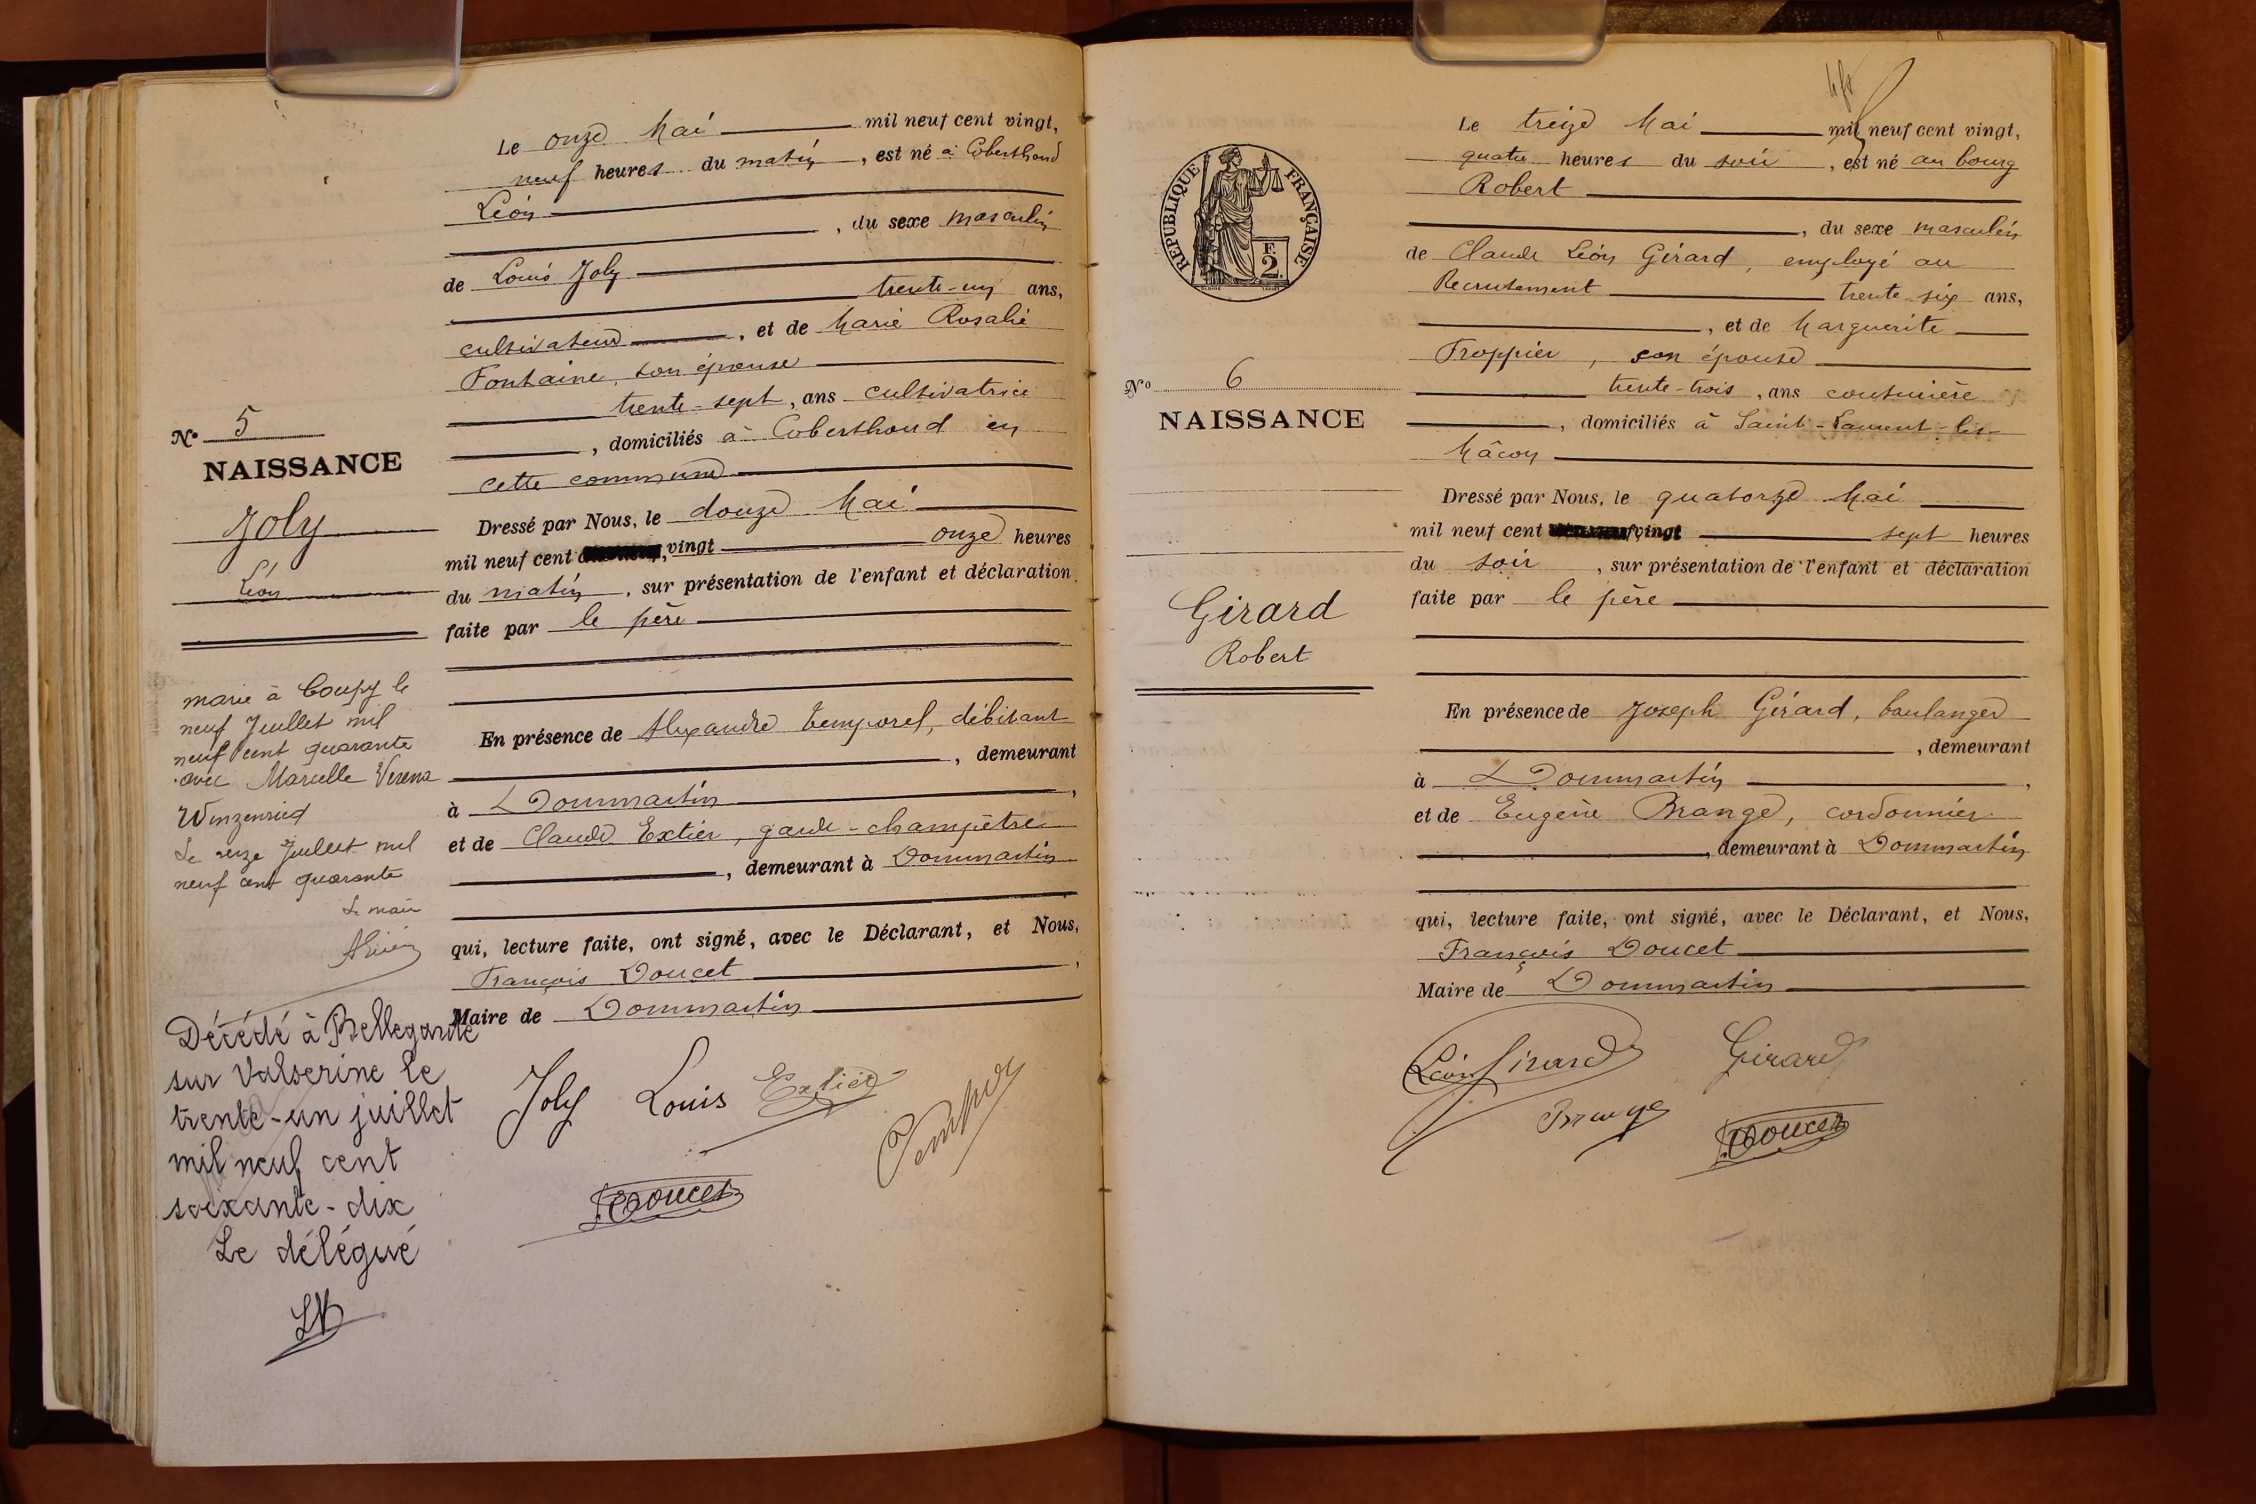 N° 5
NAISSANCE
Joly
Léon
marié à Coupy le
neuf Juillet mil
neuf cent quarante
avec Marcelle Verena
Winzenried
Le seize Juillet mil
neuf cent quarante
Le maire
Décédé à Bellegarde
sur Valserine le
trente-un juillet
mil neuf cent
soixante-dix
Le délégué
Le onze Mai mil neuf cent vingt,
neuf heures du matin, est né à Coberthoud
Léon
, du sexe masculin
de Louis Joly
trente-un ans,
cultivateur, et de Marie Rosalie
Fontaine, son épouse
trente-sept, ans cultivatrice
, domiciliés à Coberthoud en
cette commune
Dressé par Nous, le douze Mai
mil neuf cent vingt onze heures
du matin, sur présentation de l'enfant et déclaration
faite par le père
En présence de Alexandre Temporel, débitant
, demeurant
à Dommartin,
et de Claude Extier, garde-champêtre
, demeurant à Dommartin
qui, lecture faite, ont signé, avec le Déclarant, et Nous,
François Doucet,
Maire de Dommartin
Joly Louis Extier
Temporel
F. Doucet
REPUBLIQUE FRANÇAISE
F.
2
N° 6
NAISSANCE
Girard
Robert
Le treize Mai mil neuf cent vingt,
quatre heures du soir, est né au bourg
Robert
, du sexe masculin
de Claude Léon Girard, employé au
Recrutement trente-six ans,
, et de Marguerite
Froppier, son épouse
trente-trois, ans couturière
, domiciliés à Saint-Laurent-lès-
Mâcon
Dressé par Nous, le quatorze Mai
mil neuf cent vingt sept heures
du soir, sur présentation de l'enfant et déclaration
faite par le père
En présence de Joseph Girard, boulanger
, demeurant
à Dommartin,
et de Eugène Brange, cordonnier
, demeurant à Dommartin
qui, lecture faite, ont signé, avec le Déclarant, et Nous,
François Doucet
Maire de Dommartin
Léon Girard Girard
Brange
F. Doucet